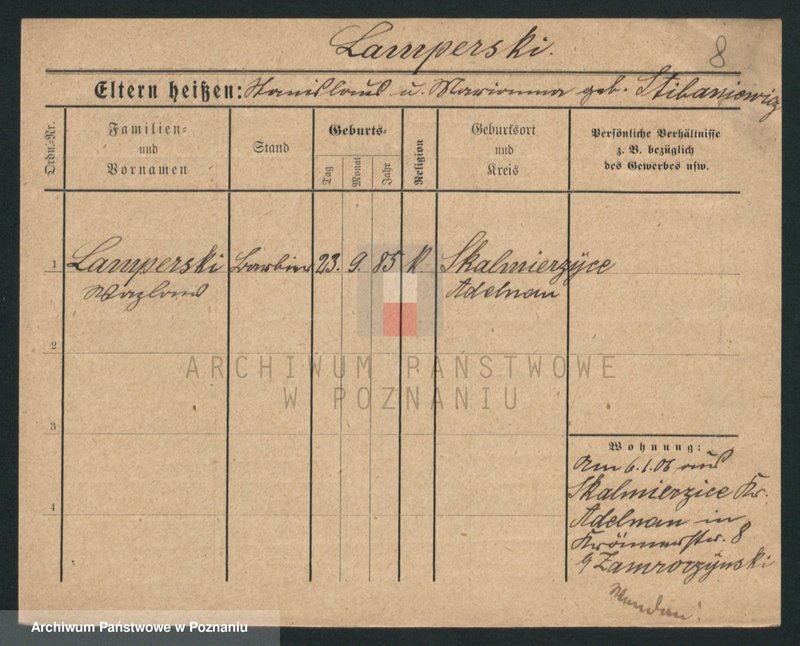 Lamperski.
8
Eltern heißen: Stanislaus u. Marianna geb. Stibaniewicz
Ordn.-Nr.
Familien-
und
Vornamen
Stand
Geburts-
Tag
Monat
Jahr
Religion
Geburtsort
und
Kreis
Persönliche Verhältnisse
z. B. bezüglich
des Gewerbes usw.
1 Lamperski Barbier 23. 9. 85 k. Skalmierzÿce
Wazlaus Adelnau
2
3
4
Wohnung:
Am 6.1.06 aus
Skalmierzice Kr.
Adelnau in
8
Zamroczÿnski
ARCHIWUM PAŃSTWOWE
W POZNANIU
Archiwum Państwowe w Poznaniu